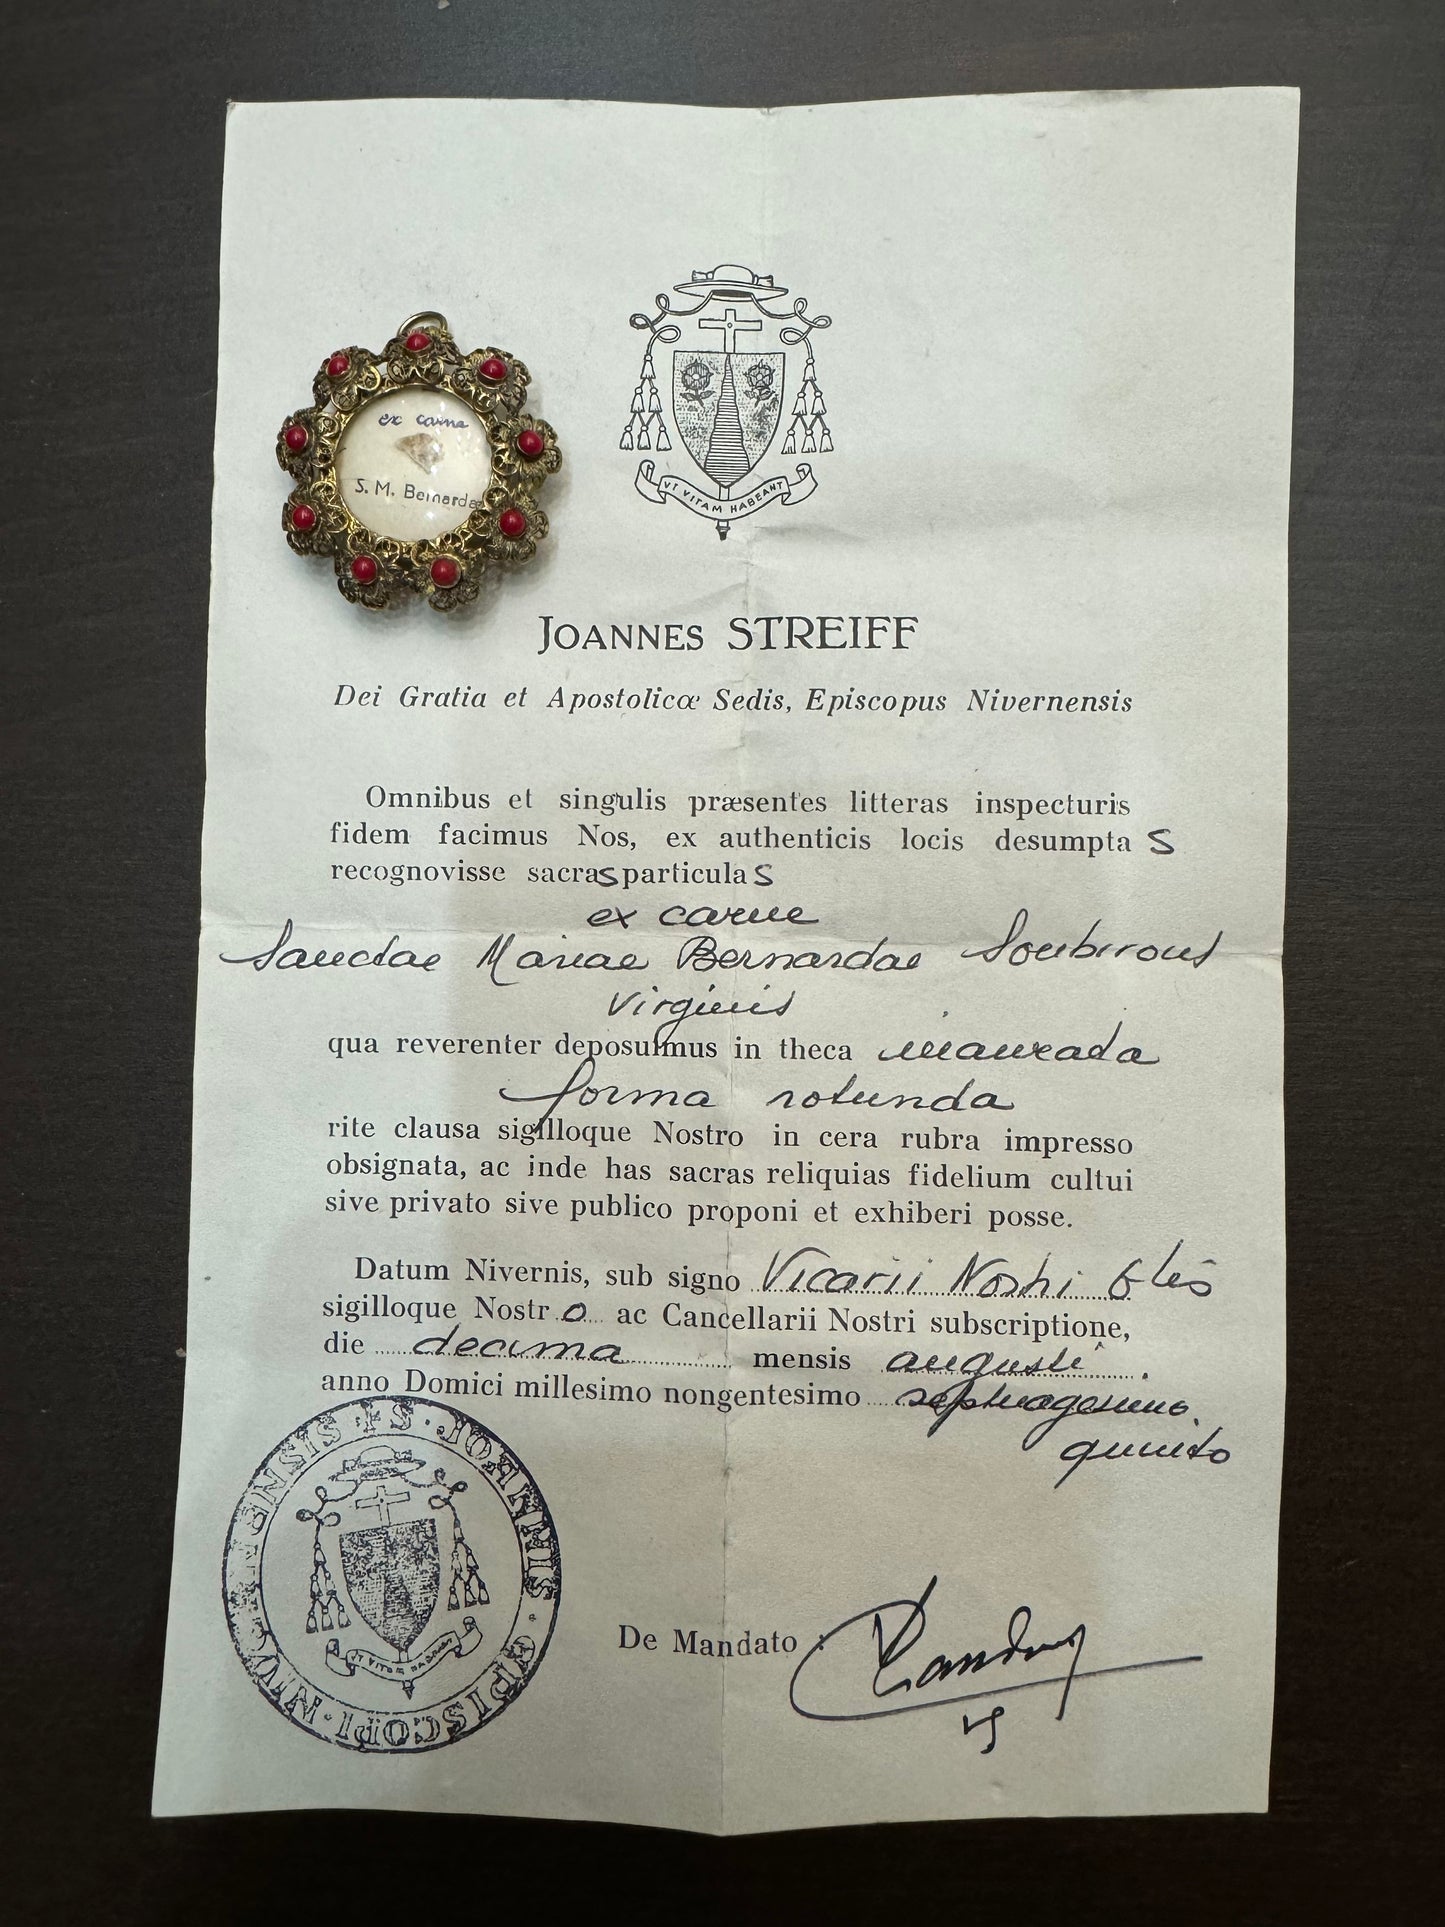 ex carne
S. M. Bernardae
VT VITAM HABEANT
JOANNES STREIFF
Dei Gratia et Apostolicæ Sedis, Episcopus Nivernensis
Omnibus et singulis præsentes litteras inspecturis
fidem facimus Nos, ex authenticis locis desumpta s
recognovisse sacras particulas
ex carne
Sanctae Mariae Bernardae Soubirous
virginis
qua reverenter deposuimus in theca inaurada
forma rotunda
rite clausa sigilloque Nostro in cera rubra impresso
obsignata, ac inde has sacras reliquias fidelium cultui
sive privato sive publico proponi et exhiberi posse.
Datum Nivernis, sub signo Vicarii Nostri Glis
sigilloque Nostro ac Cancellarii Nostri subscriptione,
die decima mensis augusti.
anno Domici millesimo nongentesimo septuagesimo
quinto
FS · JOANNIS · EPISCOPI · NIVERNENSIS ·
VT VITAM HABEANT
De Mandato :